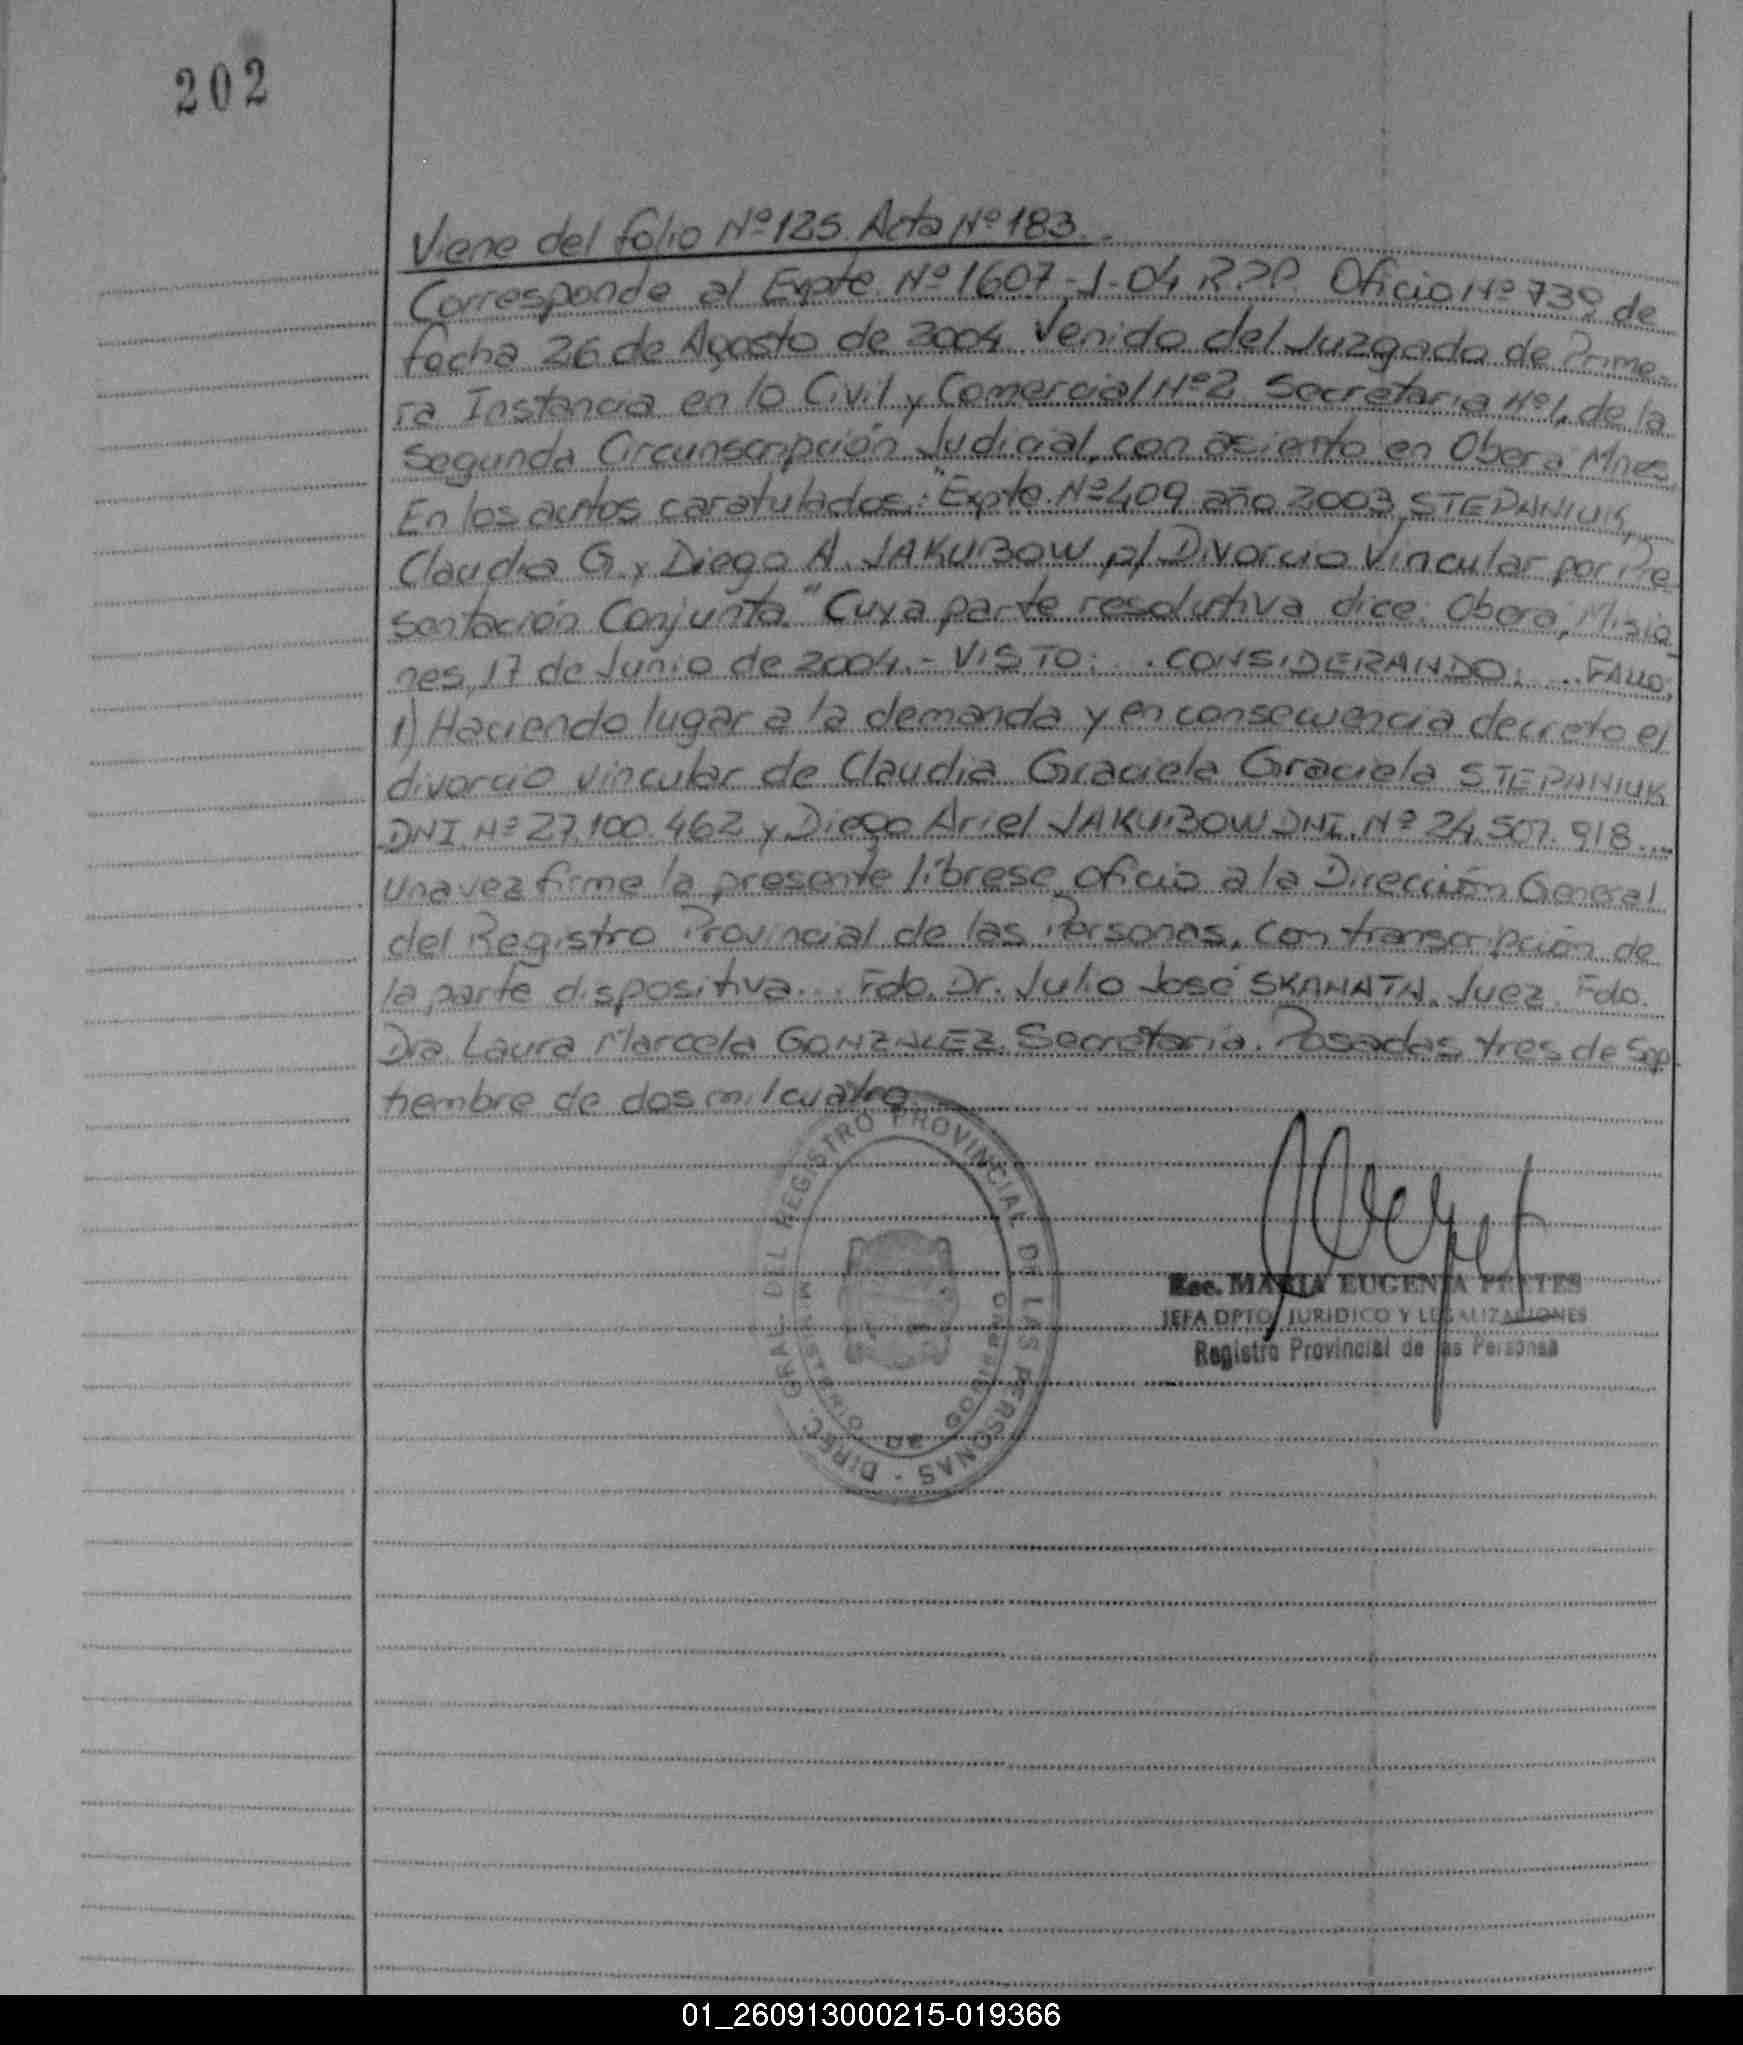 202
Viene del folio Nº 125. Acta Nº 183.
Corresponde al Expte. Nº 1607-J-04 R.P.P. Oficio Nº 739 de
fecha 26 de Agosto de 2004. Venido del Juzgado de Prime-
ra Instancia en lo Civil y Comercial Nº 2 Secretaria Nº 1, de la
Segunda Circunscripción Judicial, con asiento en Obera Mnes.
En los autos caratulados: "Expte. Nº 409 año 2003 STEPANIUK,
Claudia G. y Diego A. JAKUBOW p/ Divorcio Vincular por Pre-
sentación Conjunta." Cuya parte resolutiva dice: Obera, Misio-
nes, 17 de Junio de 2004.- VISTO: .. CONSIDERANDO: ... FALLO:
1) Haciendo lugar a la demanda y en consecuencia decreto el
divorcio vincular de Claudia Graciela Graciela STEPANIUK
DNI Nº 27.100.462 y Diego Ariel JAKUBOW DNI. Nº 24.507.918...
una vez firme la presente líbrese oficio a la Dirección General
del Registro Provincial de las Personas, con transcripción de
la parte dispositiva... Fdo. Dr. Julio José SKANATA. Juez. Fdo.
Dra. Laura Marcela GONZALEZ Secretaria. Posadas, tres de Sep-
tiembre de dos mil cuatro.
DIREC. GRAL. DEL REGISTRO PROVINCIAL DE LAS PERSONAS -
MINISTERIO DE GOBIERNO
Esc. MARIA EUGENIA PRETES
JEFA DPTO. JURIDICO Y LEGALIZACIONES
Registro Provincial de las Personas
01_260913000215-019366